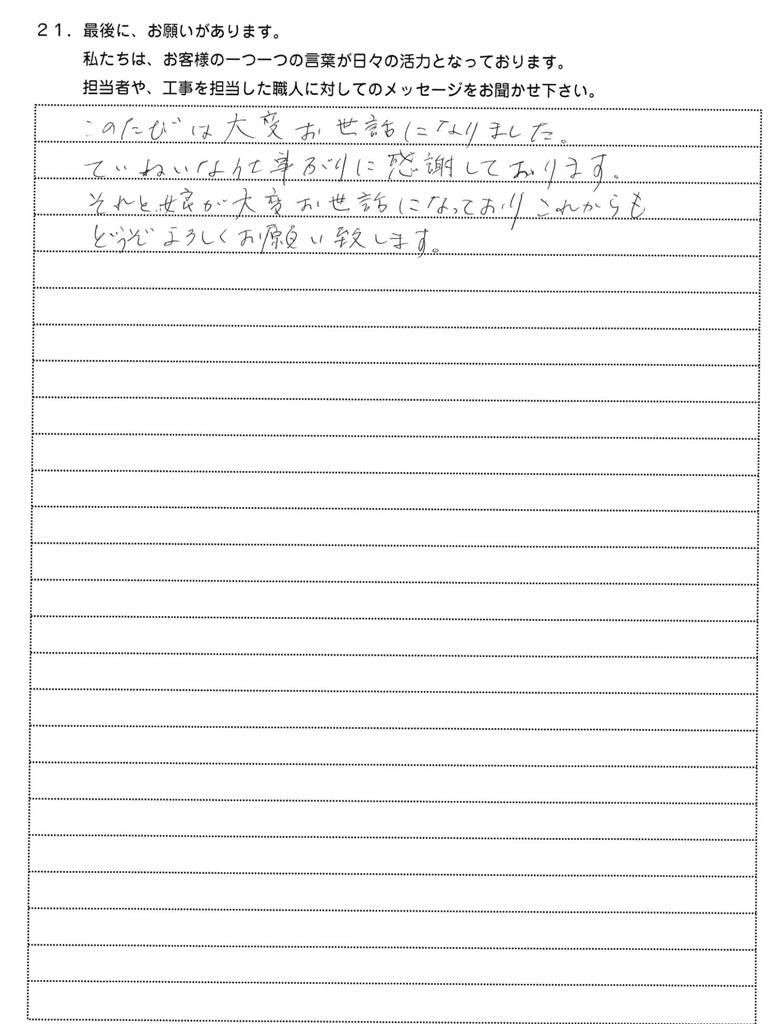 21．最後に、お願いがあります。
私たちは、お客様の一つ一つの言葉が日々の活力となっております。
担当者や、工事を担当した職人に対してのメッセージをお聞かせ下さい。
このたびは大変お世話になりました。
ていねいな仕事ぶりに感謝しております。
それと、娘が大変お世話になっており これからも
どうぞよろしくお願い致します。